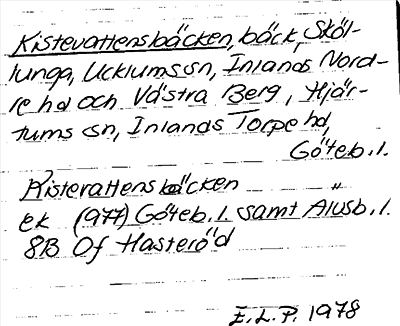 Kistevattensbäcken, bäck, Sköl-
lunga, Ucklums sn, Inlands Nord-
re hd och Västra Berg, Hjär-
tums sn, Inlands Torpe hd,
Göteb. l.
Kistevattensbäcken
ek (1977) Göteb. l. samt Älvsb. l.
8B 0f Hasteröd
E.L.P. 1978